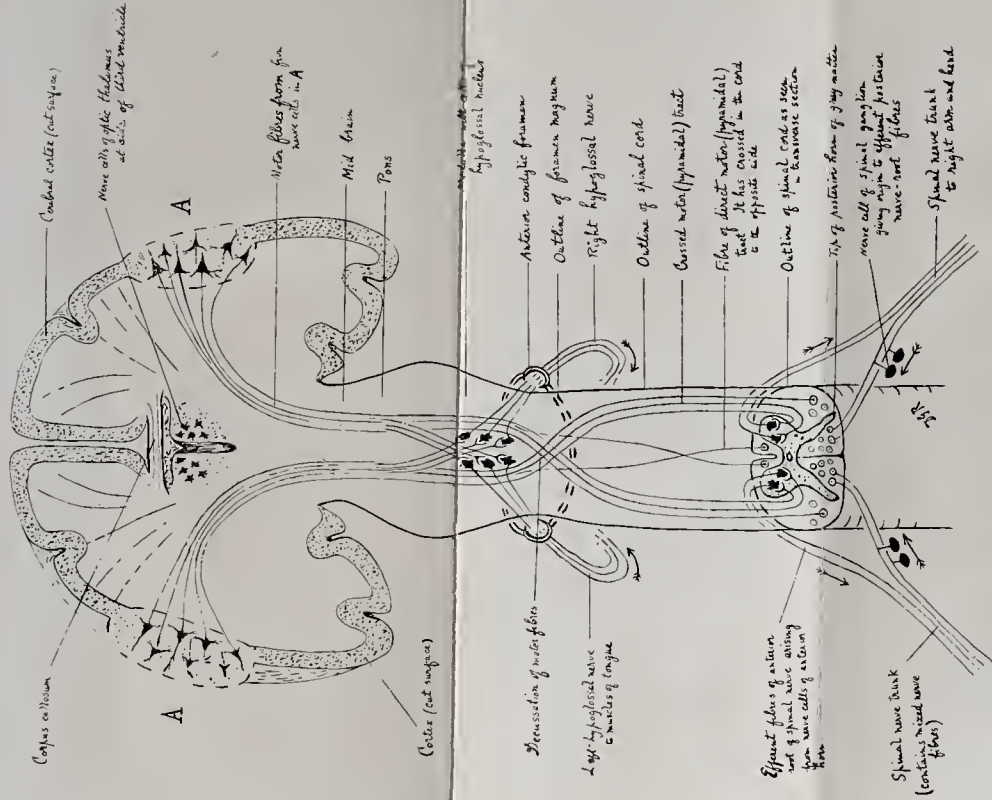 Cerebral cortex (cut surface)
Nerve cells of optic thalamus
at side of third ventricle
A
Motor fibres from
nerve cells in A
Mid brain
Pons
hypoglossal nucleus
Anterior condylic foramen
Outline of foramen magnum
Right hypoglossal nerve
Outline of spinal cord
Crossed motor (pyramidal) tract
Fibre of direct motor (pyramidal)
tract It has crossed in the cord
to the opposite side
Outline of spinal cord as seen
in transverse section
Tip of posterior horn of gray matter
Nerve cell of spinal ganglion
giving origin to efferent posterior
nerve-root fibres
Spinal nerve trunk
to right arm and hand
Corpus callosum
A
Cortex (cut surface)
Decussation of motor fibres
Left hypoglossal nerve
to muscles of tongue
Efferent fibres of anterior
root of spinal nerve arising
from nerve cells of anterior
horn
Spinal nerve trunk
(contains mixed nerve
fibres)